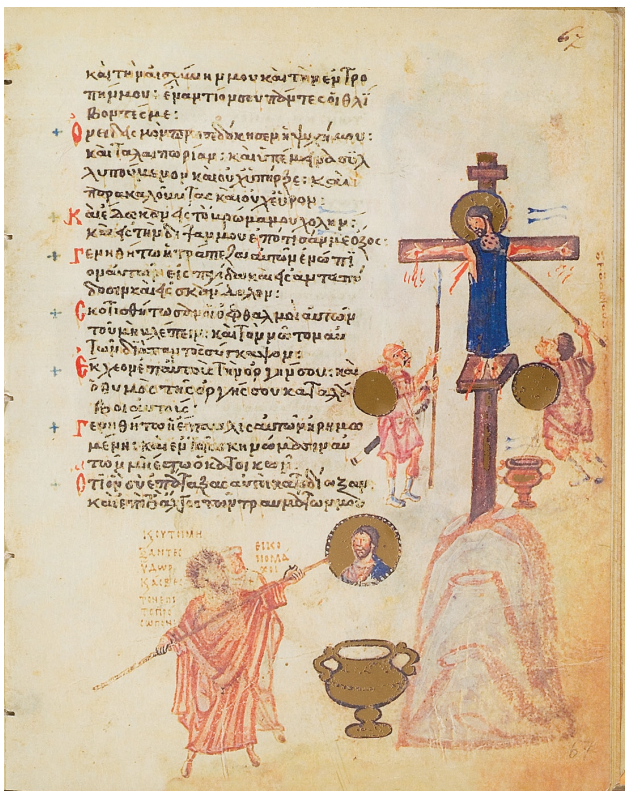 62
καὶ τὴν αἰσχύνην μου καὶ τὴν ἐντρο
πήν μου: ἐναντίον σου πάντες οἱ θλί
βοντές με:
Ὀνειδισμὸν προσεδόκησεν ἡ ψυχή μου:
καὶ ταλαιπωρίαν: καὶ ὑπέμεινα συλ
λυπούμενον καὶ οὐχ ὑπῆρξε: καὶ
παρακαλοῦντας καὶ οὐχ εὗρον:
Καὶ ἔδωκαν εἰς τὸ βρῶμα μου χολὴν:
καὶ εἰς τὴν δίψαν μου ἐπότισάν με ὄξος:
Γενηθήτω ἡ τράπεζα αὐτῶν ἐνώπι
ον αὐτῶν εἰς παγίδα καὶ εἰς ἀνταπό
δοσιν καὶ εἰς σκάνδαλον:
Σκοτισθήτωσαν οἱ ὀφθαλμοὶ αὐτῶν
τοῦ μὴ βλέπειν: καὶ τὸν νῶτον αὐ
τῶν διὰ παντὸς σύγκαμψον:
Ἔκχεον ἐπ' αὐτοὺς τὴν ὀργήν σου: καὶ
ὁ θυμὸς τῆς ὀργῆς σου καταλά
βοι αὐτούς:
Γενηθήτω ἡ ἔπαυλις αὐτῶν ἠρημω
μένη: καὶ ἐν τοῖς σκηνώμασιν αὐ
τῶν μὴ ἔστω ὁ κατοικῶν:
Ὅτι ὃν σὺ ἐπάταξας αὐτοὶ κατεδίωξαν:
καὶ ἐπὶ τὸ ἄλγος τῶν τραυμάτων μου
ΥΔΩΡ
67